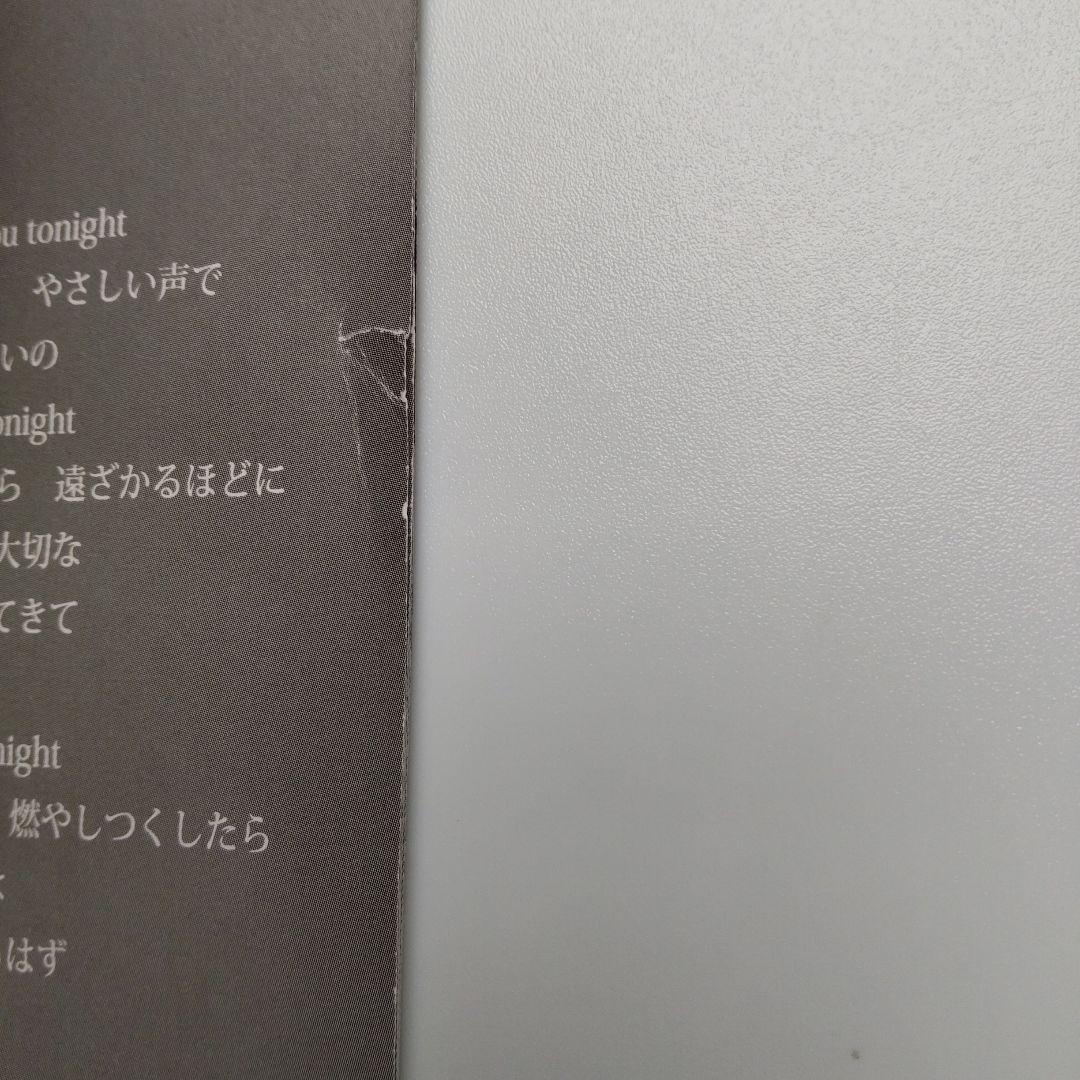 tonight
やさしい声で
いの
tonight
ら 遠ざかるほどに
大切な
てきて
night
燃やしつくしたら
はず